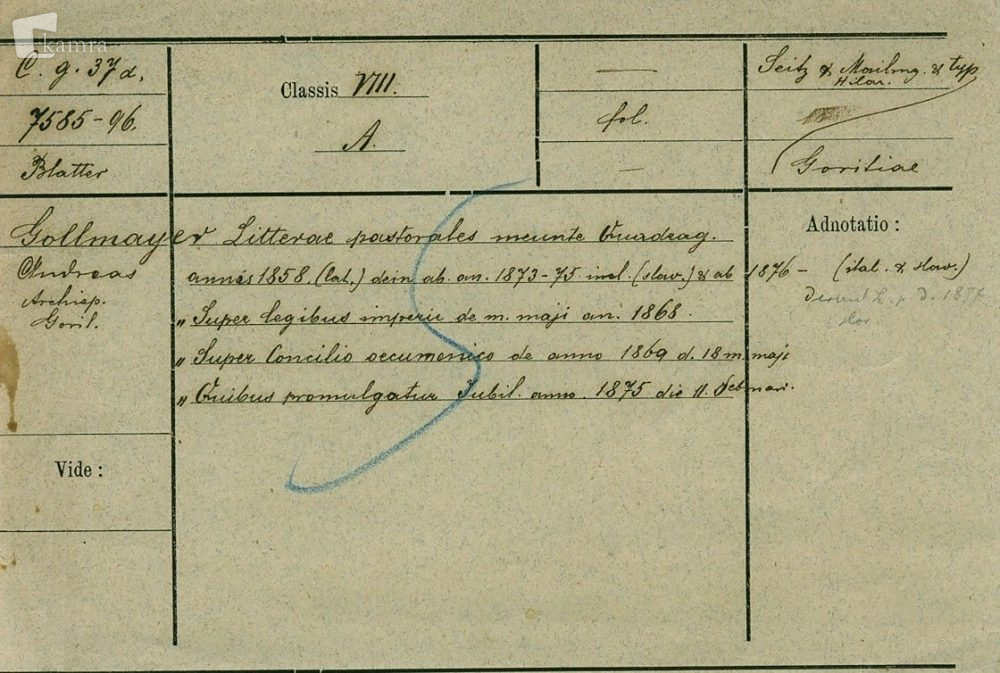 kamra
C. g. 37 d.
7585-96.
Blatter
Classis VIII.
A.
—
fol.
—
Seitz & Mailing. & typ
Hilar.
Goritiae
Gollmayer Litterae pastorales ineunte Quadrag.
Andreas
Archiep.
Gorit.
annis 1858. (lat.) dein ab. an. 1873-75 incl. (slav.) & ab 1876 - (ital. & slav.)
„ Super legibus imperii de m. maji an. 1868.
„ Super Concilio oecumenico de anno 1869 d. 18 m. maji
„ Quibus promulgatur Jubil. anno. 1875 die 11. Februari.
Adnotatio :
Vide :